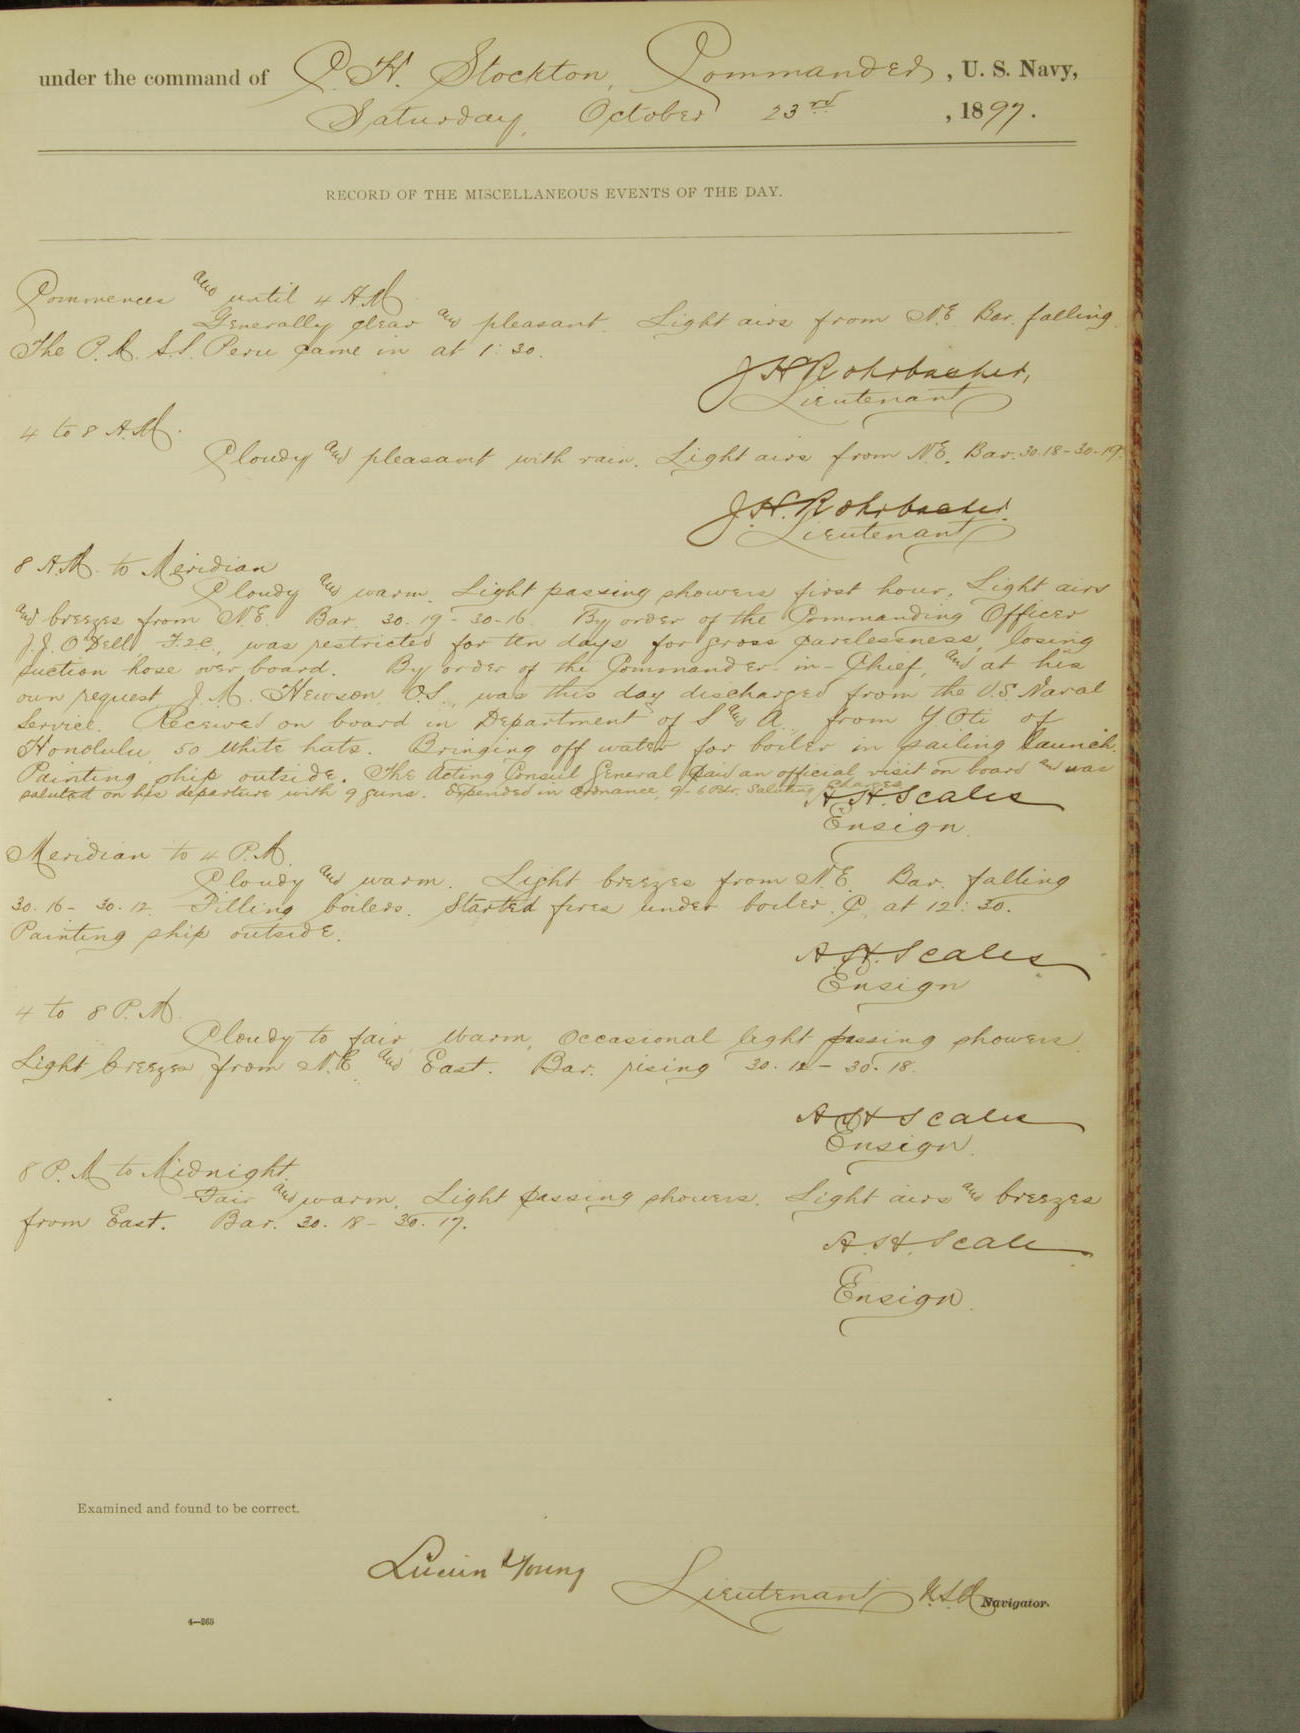 under the command of C. H. Stockton, Commander, U. S. Navy,
Saturday, October 23rd, 1897.
RECORD OF THE MISCELLANEOUS EVENTS OF THE DAY.
Commences and until 4 A.M.
Generally clear and pleasant. Light airs from N.E. Bar. falling.
The P.M. S.S. Peru came in at 1:30.
J H Rohrbacher,
Lieutenant
4 to 8 A.M.
Cloudy and pleasant with rain. Light airs from N.E. Bar. 30.18-30-19.
J. H. Rohrbacher.
Lieutenant
8 A.M. to Meridian
Cloudy and warm. Light passing showers first hour. Light airs
and breezes from N.E. Bar. 30.19-30-16. By order of the Commanding Officer
J.J. O'Dell F.2C., was restricted for ten days for gross carelessness, losing
suction hose over board. By order of the Commander-in-Chief, and at his
own request, J. M. Hewson, O.S., was this day discharged from the U.S. Naval
Service. Received on board in Department of S and A. from Y Oti of
Honolulu, 50 white hats. Bringing off water for boiler in sailing launch.
Painting ship outside. The Acting Consul General paid an official visit on board and was
saluted on his departure with 9 guns. Expended in Ordnance, 9-6 Pdr. Saluting Charges
A. H. Scales
Ensign.
Meridian to 4 P.M.
Cloudy and warm. Light breezes from N.E. Bar. falling
30.16-30.12. Filling boilers. Started fires under boiler C, at 12:30.
Painting ship outside.
A. H. Scales
Ensign
4 to 8 P.M.
Cloudy to fair, warm, occasional light passing showers.
Light breezes from N.E. and East. Bar. rising 30.12-30.18.
A H Scales
Ensign.
8 P.M to Midnight.
Fair and warm. Light passing showers. Light airs and breezes
from East. Bar. 30.18-30.17.
A. H. Scales
Ensign.
Examined and found to be correct.
Lucien Young
Lieutenant U.S.N. Navigator.
4—265